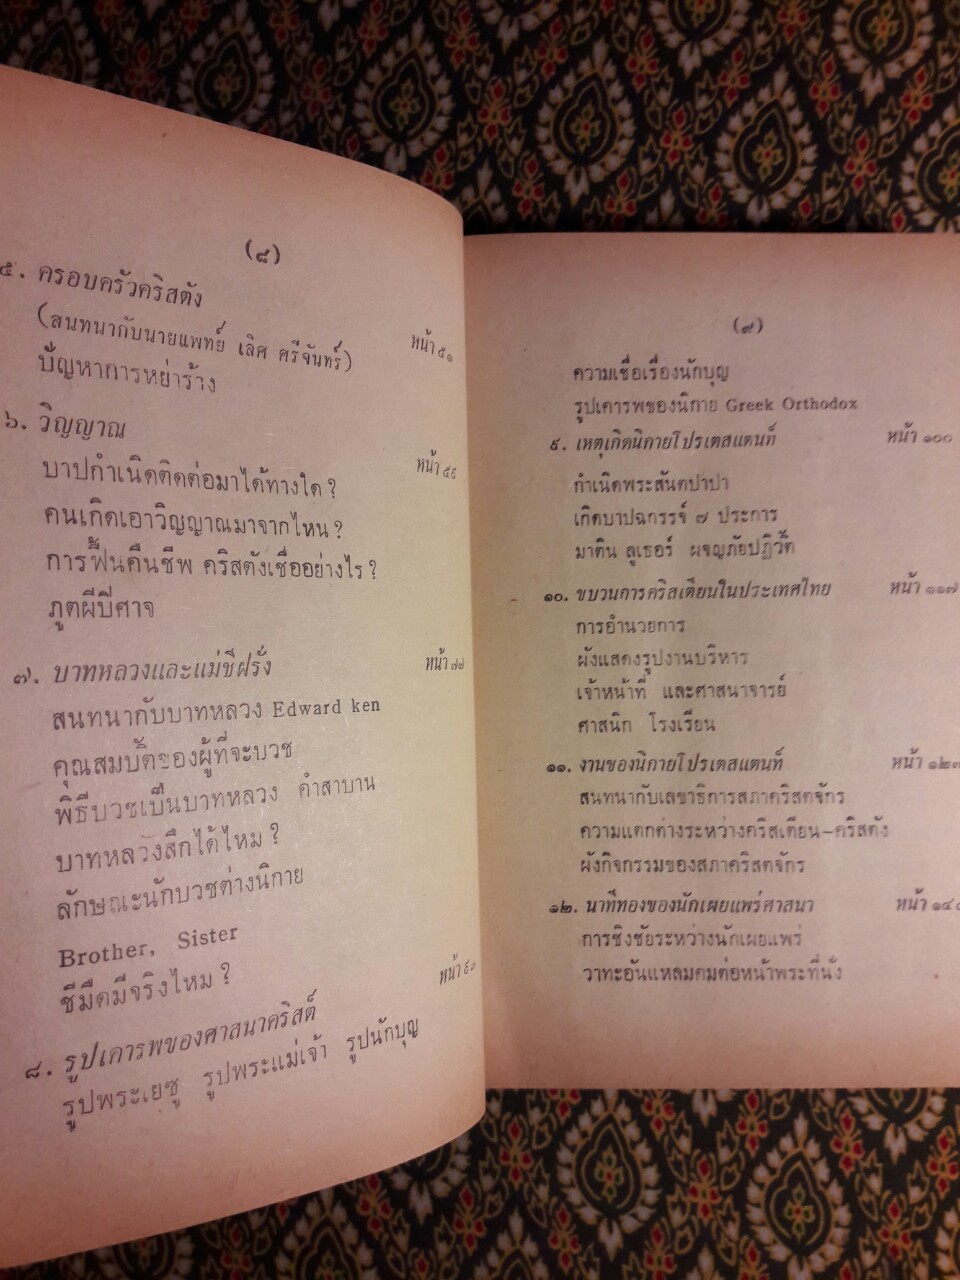 (๘)
๕. ครอบครัวคริสตัง
(สนทนากับนายแพทย์ เลิศ ศรีจันทร์) หน้า ๕๑
ปัญหาการหย่าร้าง
๖. วิญญาณ
บาปกำเนิดติดต่อมาได้ทางใด ? หน้า ๕๙
คนเกิดเอาวิญญาณมาจากไหน ?
การฟื้นคืนชีพ คริสตังเชื่ออย่างไร ?
ภูตผีปีศาจ
๗. บาทหลวงและแม่ชีฝรั่ง หน้า ๗๗
สนทนากับบาทหลวง Edward ken
คุณสมบัติของผู้ที่จะบวช
พิธีบวชเป็นบาทหลวง คำสาบาน
บาทหลวงสึกได้ไหม ?
ลักษณะนักบวชต่างนิกาย
Brother, Sister
ชีมืดมีจริงไหม ?
๘. รูปเคารพของศาสนาคริสต์ หน้า
รูปพระเยซู รูปพระแม่เจ้า รูปนักบุญ
(๙)
ความเชื่อเรื่องนักบุญ
รูปเคารพของนิกาย Greek Orthodox
๙. เหตุเกิดนิกายโปรเตสแตนท์ หน้า ๑๐๐
กำเนิดพระสันตปาปา
เกิดบาปฉกรรจ์ ๗ ประการ
มาติน ลูเธอร์ ผจญภัยปฏิวัติ
๑๐. ขบวนการคริสเตียนในประเทศไทย หน้า ๑๑๗
การอำนวยการ
ผังแสดงรูปงานบริหาร
เจ้าหน้าที่ และศาสนาจารย์
ศาสนิก โรงเรียน
๑๑. งานของนิกายโปรเตสแตนท์ หน้า
สนทนากับเลขาธิการสภาคริสตจักร
ความแตกต่างระหว่างคริสเตียน–คริสตัง
ผังกิจกรรมของสภาคริสตจักร
๑๒. นาทีทองของนักเผยแพร่ศาสนา หน้า
การชิงชัยระหว่างนักเผยแพร่
วาทะอันแหลมคมต่อหน้าพระที่นั่ง